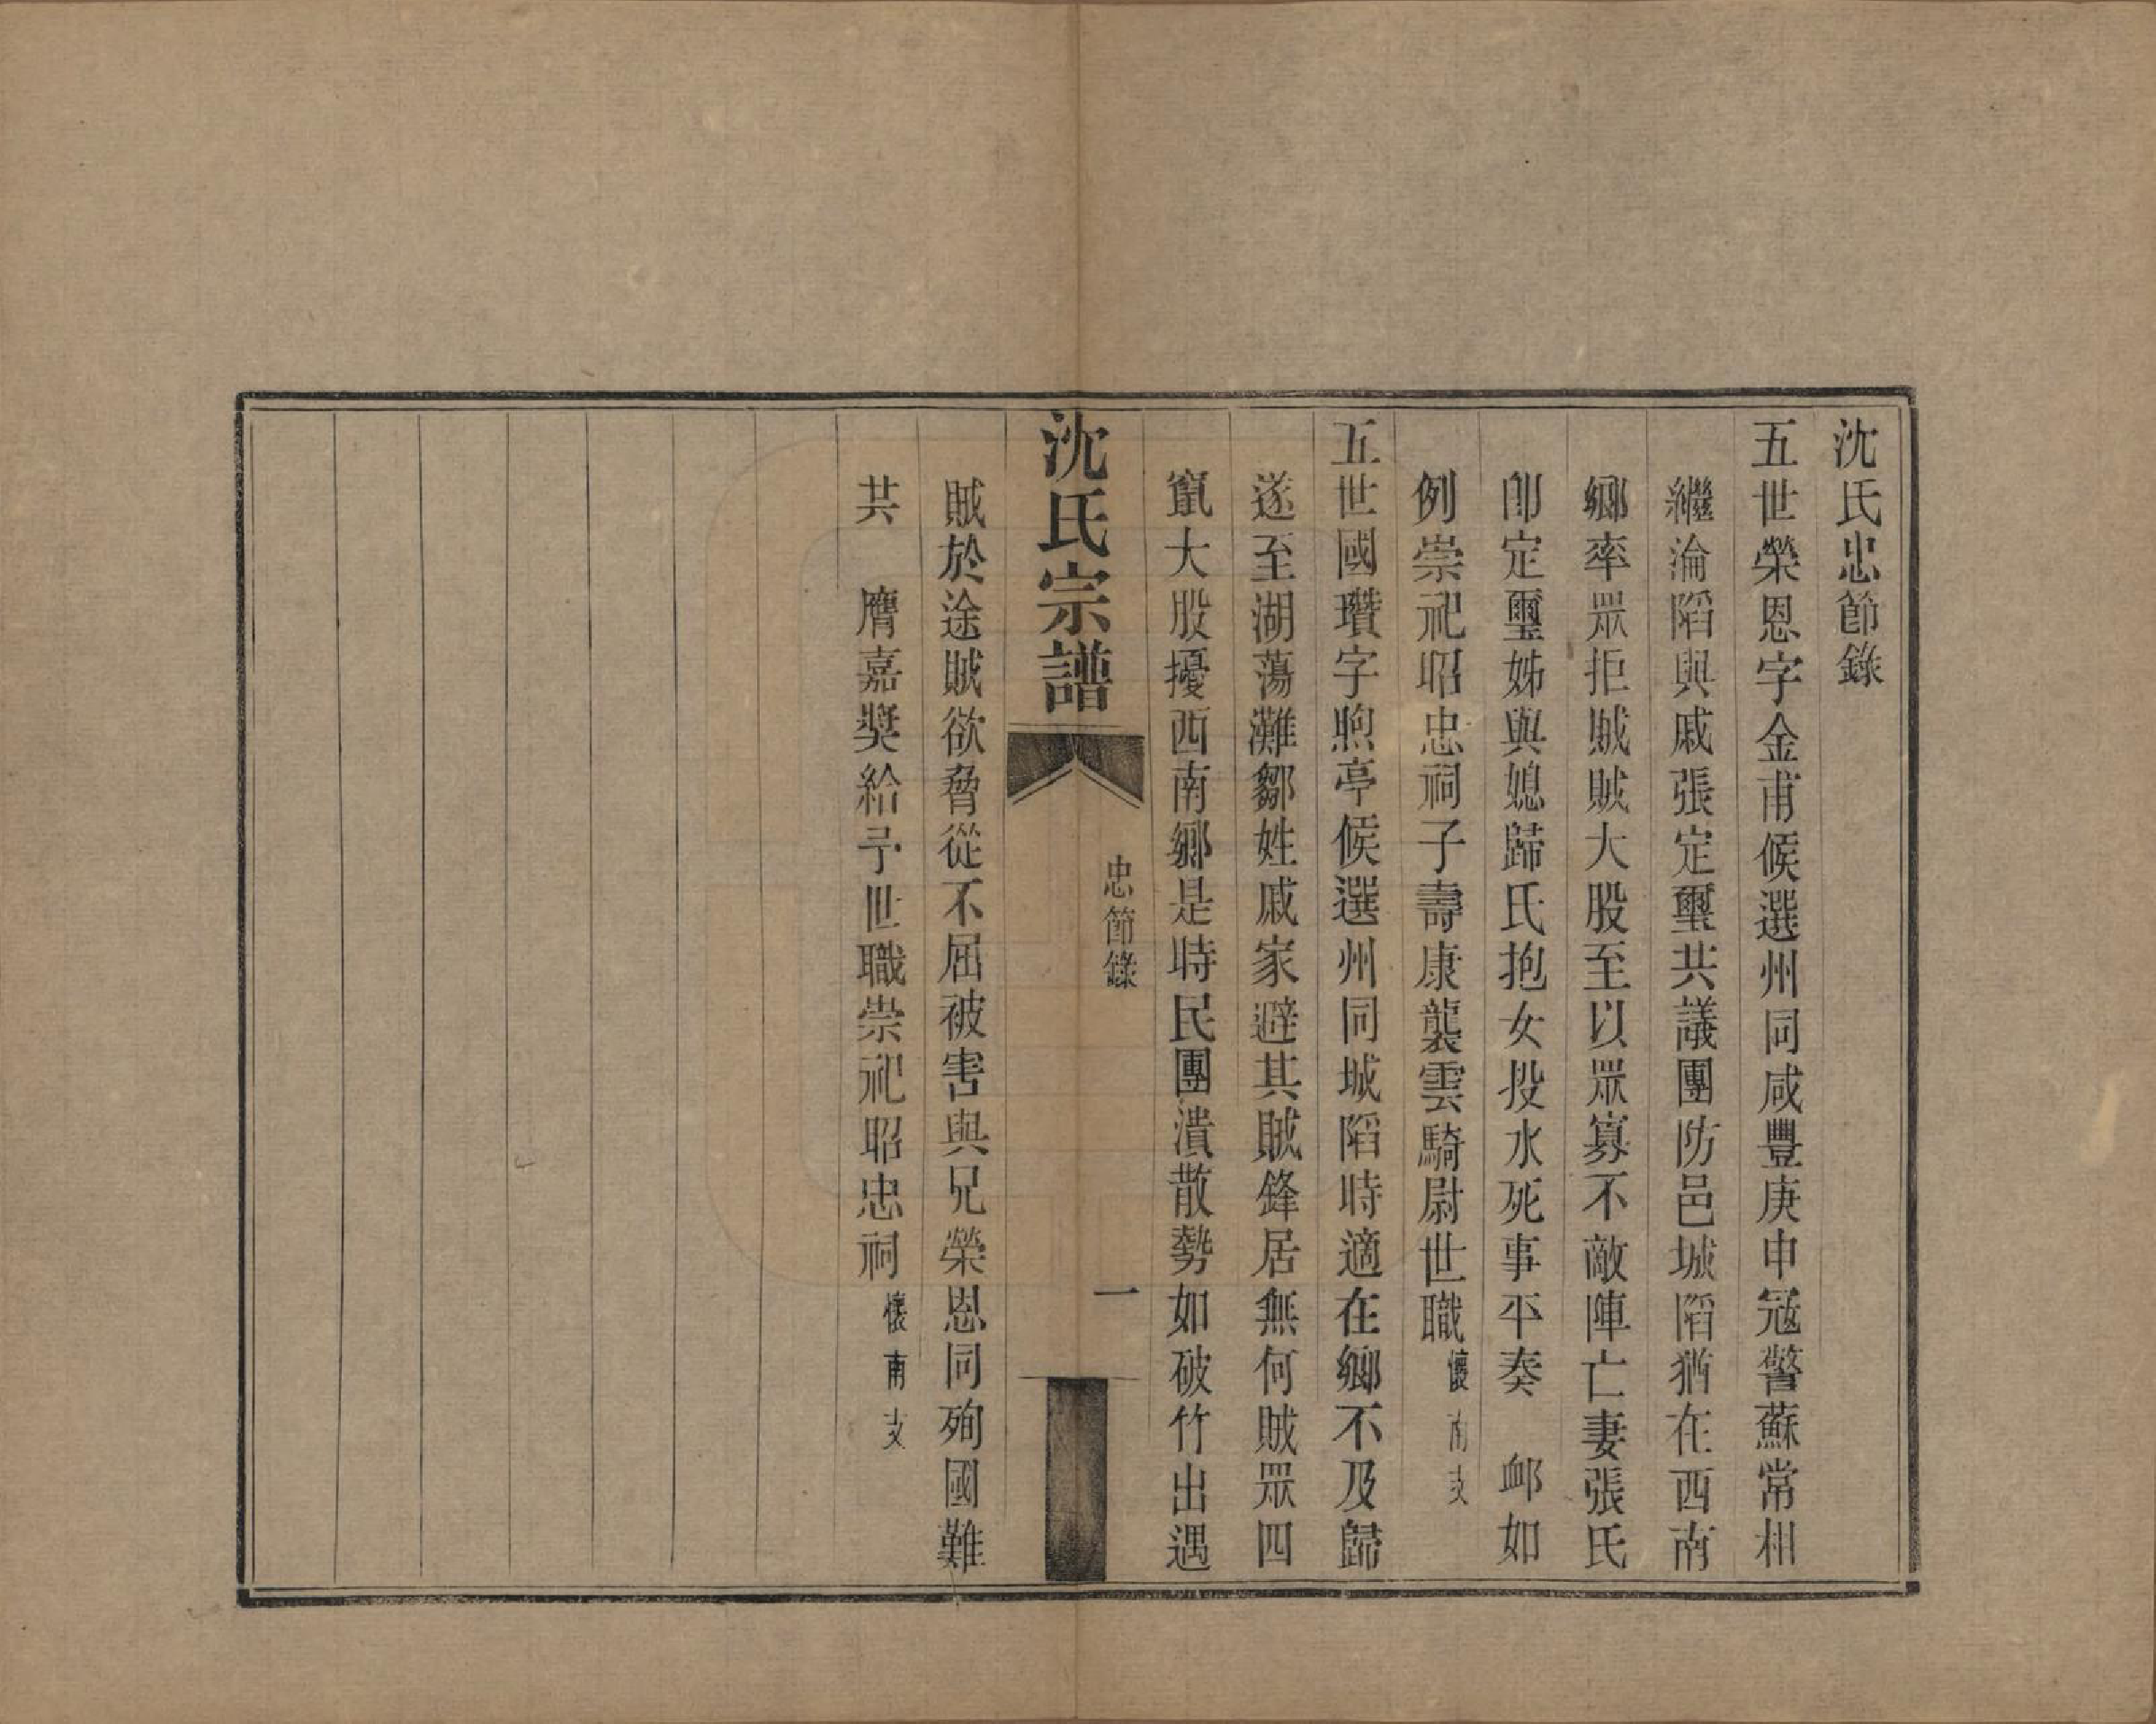 沈氏忠節錄
五世榮恩字金甫候選州同咸豐庚申冠警蘇常相
繼淪陷與戚張定璽共議團防邑城陷猶在西南
鄉率眾拒賊賊大股至以眾寡不敵陣亡妻張氏
卽定璽姊與媳歸氏抱女投水死事平奏 卹如
例崇祀昭忠祠子壽康襲雲騎尉世職懷南支
五世國瓚字煦亭候選州同城陷時適在鄉不及歸
遂至湖蕩灘鄒姓戚家避其賊鋒居無何賊眾四
竄大股擾西南鄉是時民團潰散勢如破竹出遇
沈氏宗譜
忠節錄
一
賊於途賊欲脅從不屈被害與兄榮恩同殉國難
共 膺嘉獎給予世職崇祀昭忠祠懷南支